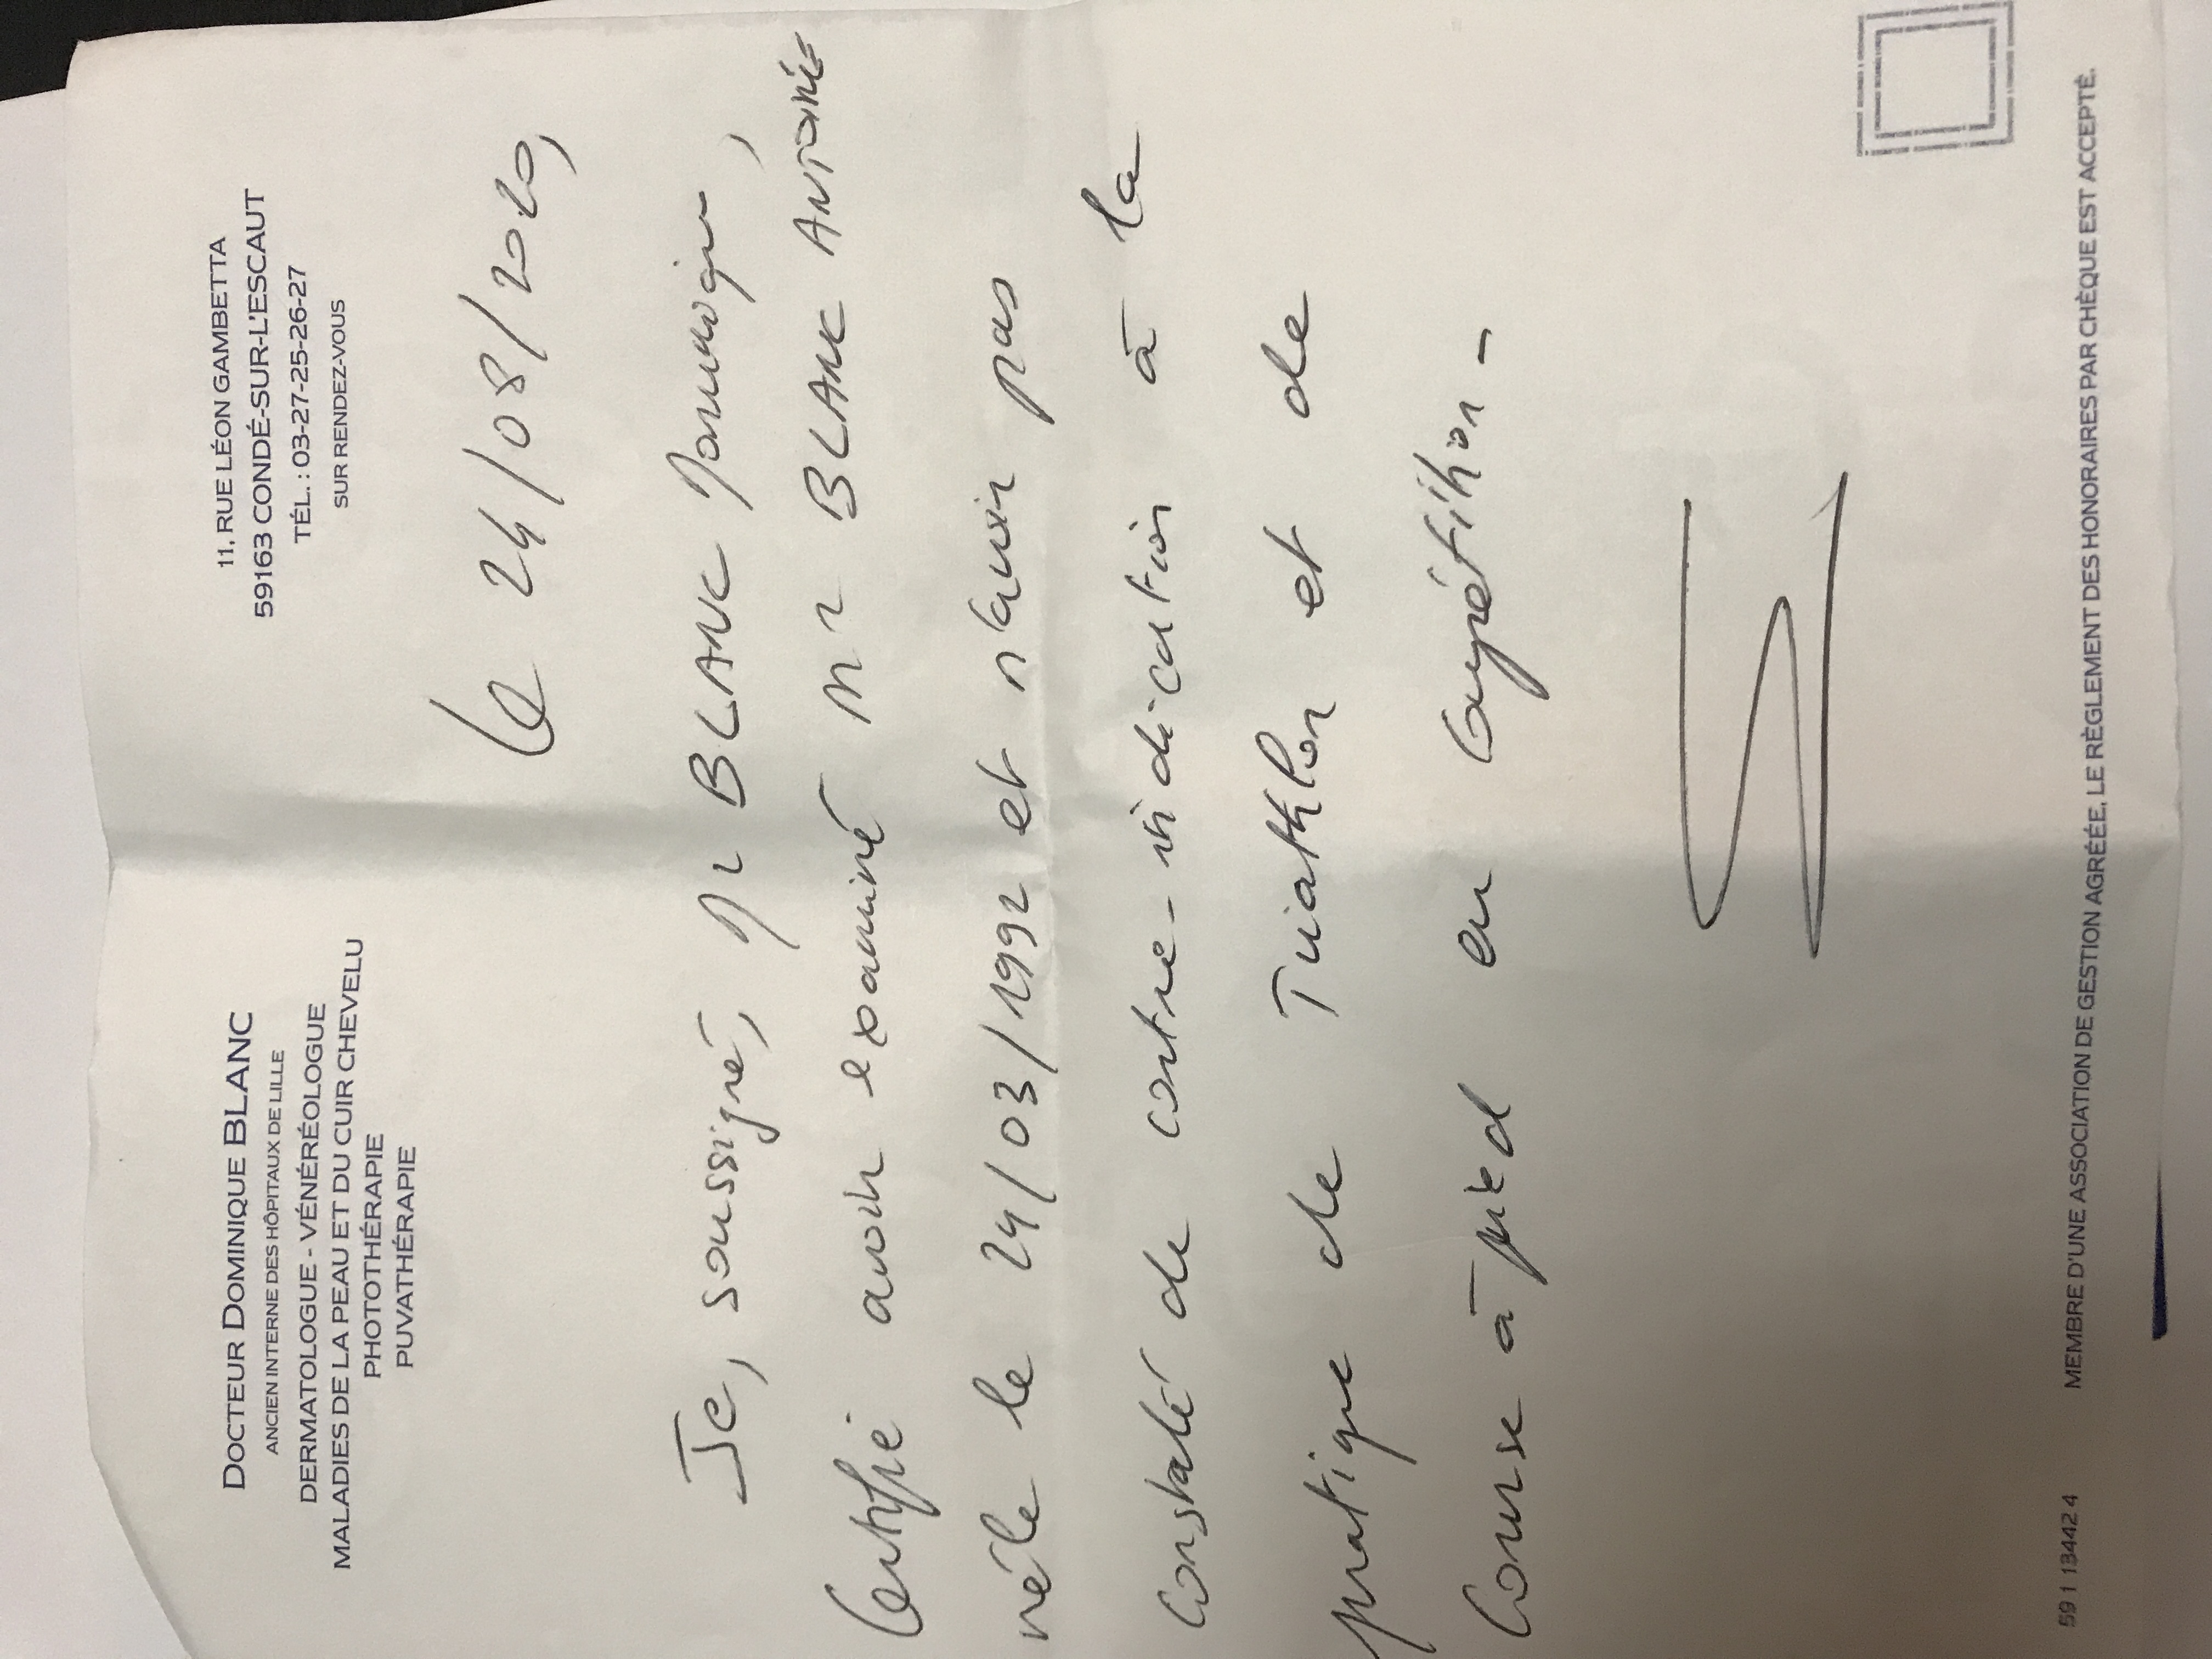 DOCTEUR DOMINIQUE BLANC
ANCIEN INTERNE DES HÔPITAUX DE LILLE
DERMATOLOGUE - VÉNÉRÉOLOGUE
MALADIES DE LA PEAU ET DU CUIR CHEVELU
PHOTOTHÉRAPIE
PUVATHÉRAPIE
11, RUE LÉON GAMBETTA
59163 CONDÉ-SUR-L'ESCAUT
TÉL. : 03-27-25-26-27
SUR RENDEZ-VOUS
Le 24/08/2020,
Je, soussigné, Mr BLANC Dominique,
Certifie avoir examiné Mr BLANC ANTOINE
né le le 24/03/1992 et n'avoir pas
Constaté de contre-indication à la
pratique de Triathlon et de
Course à pied en Compétition -
59 1 13442 4
MEMBRE D'UNE ASSOCIATION DE GESTION AGRÉÉE, LE RÈGLEMENT DES HONORAIRES PAR CHÈQUE EST ACCEPTÉ.